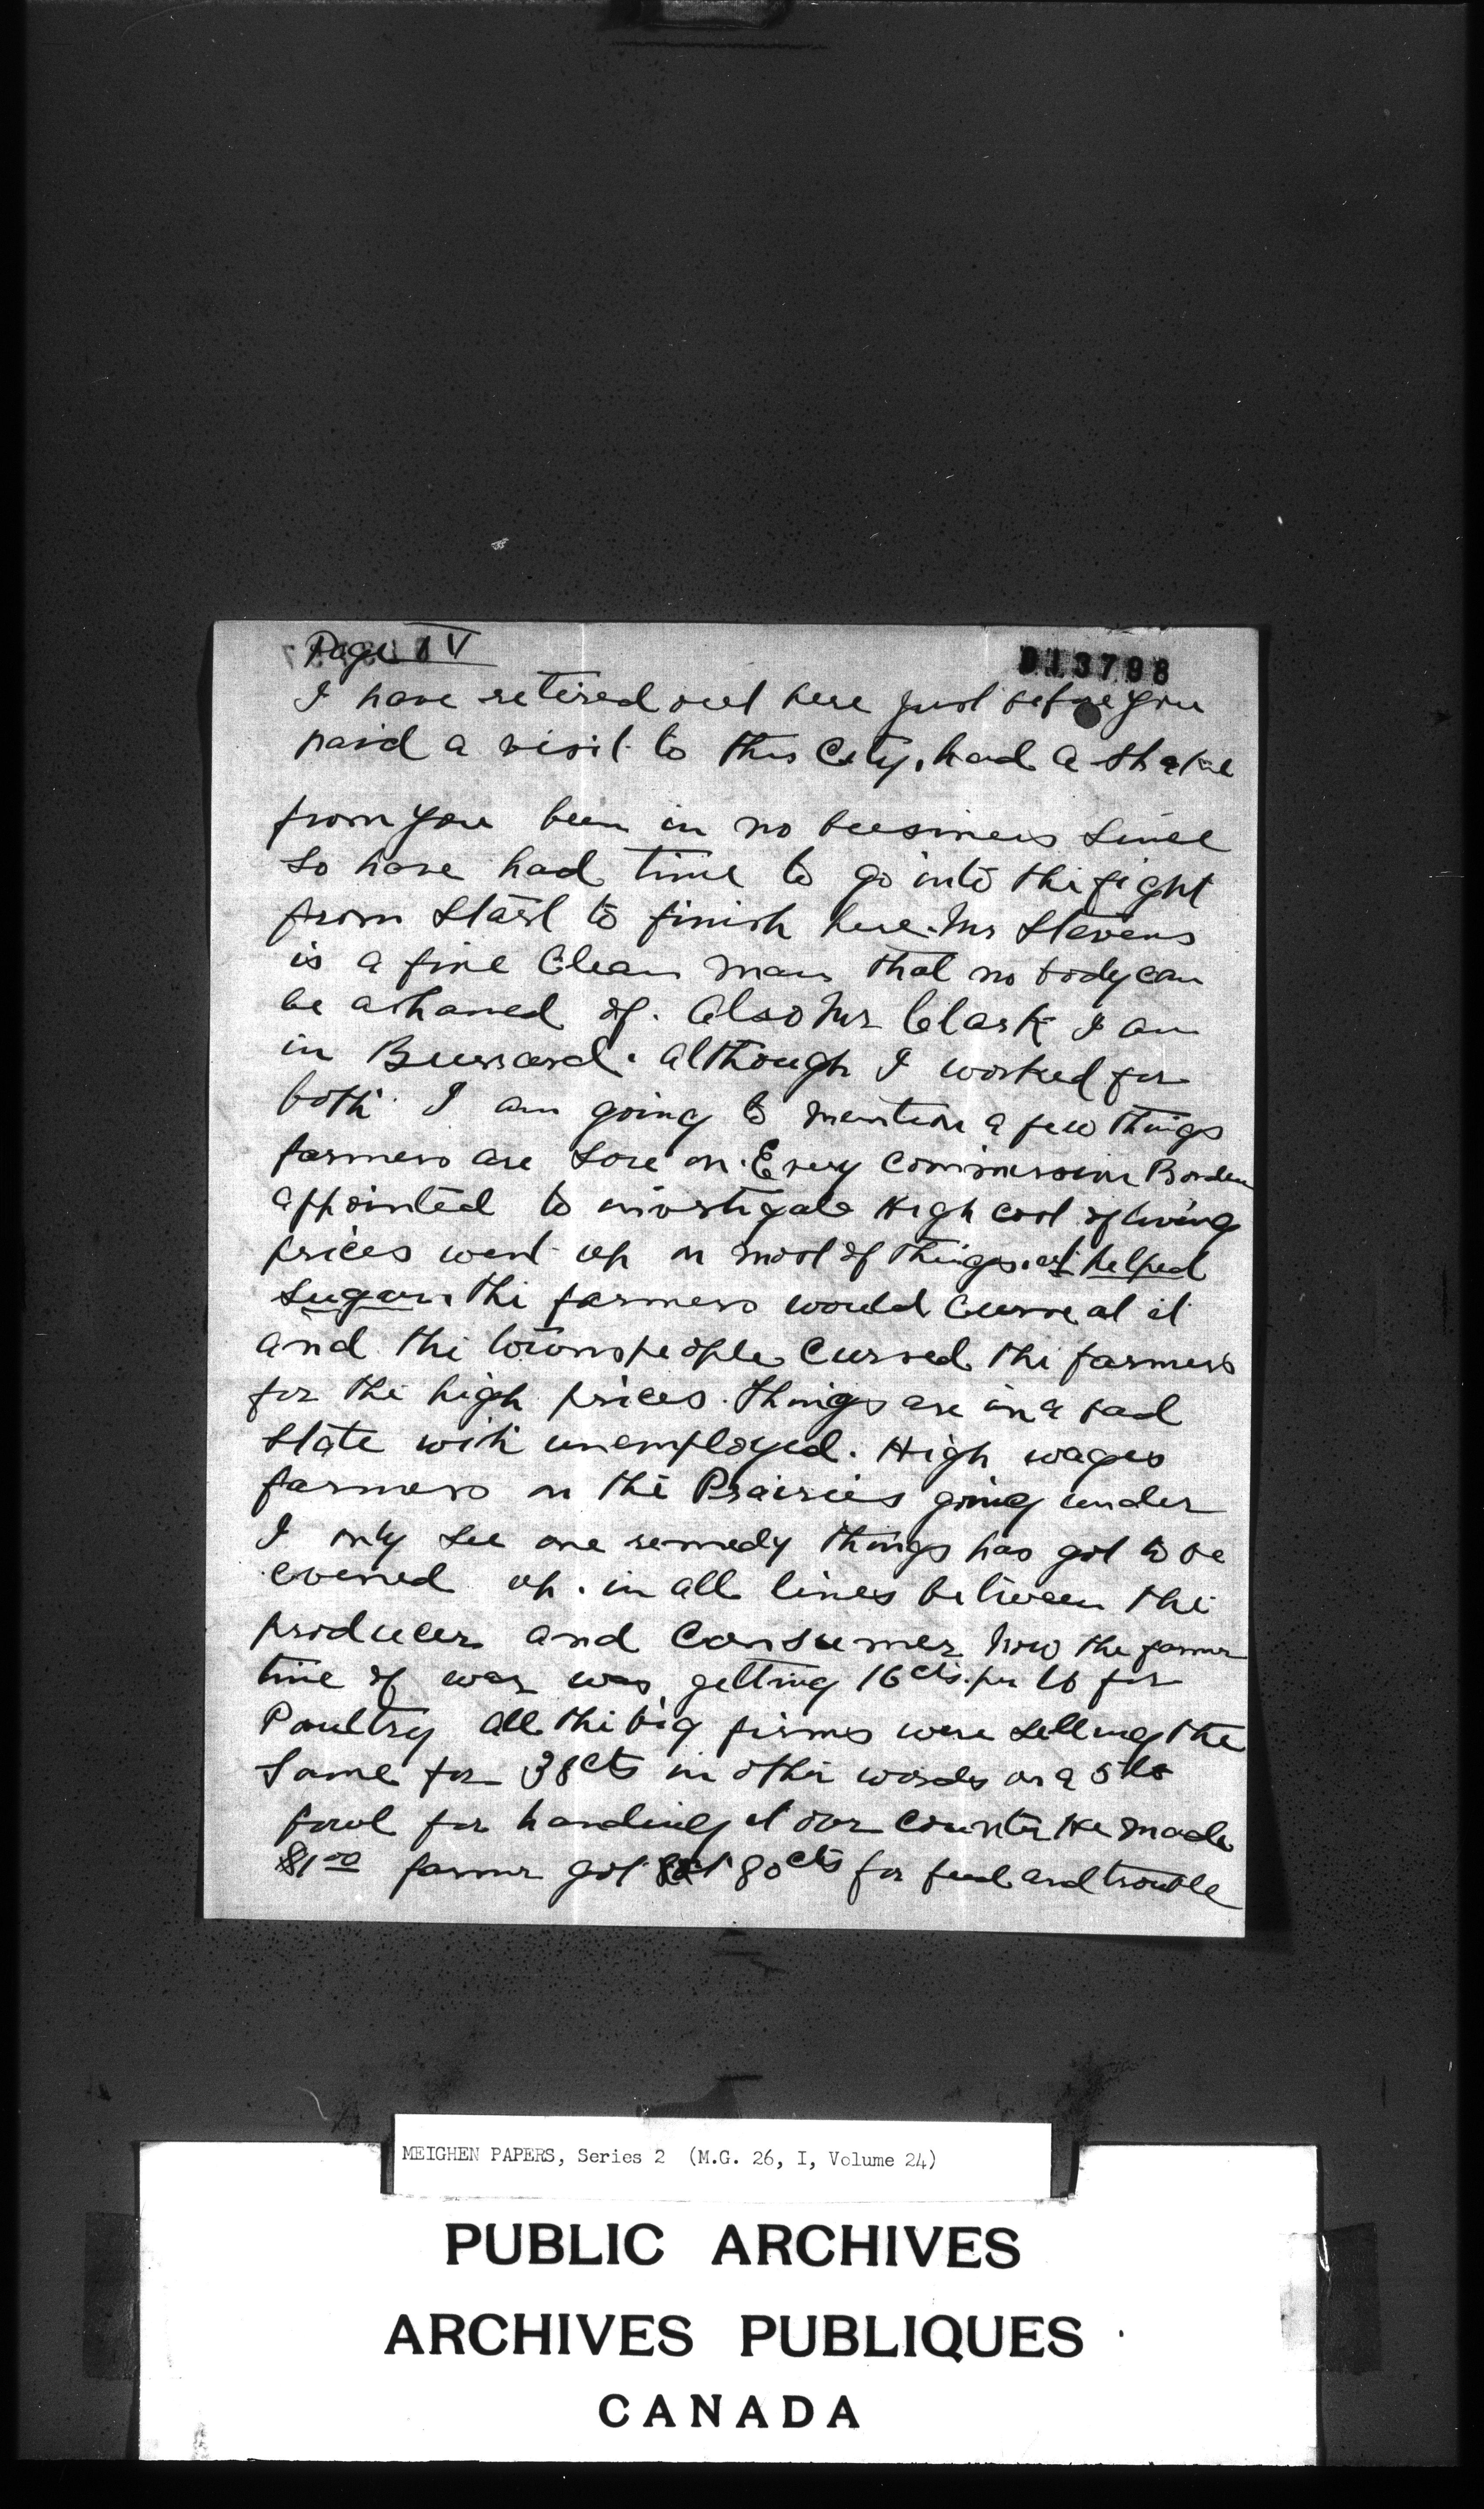 Page IV
013798
I have retired out here just before you
paid a visit to this City, had a shake
from you been in no business since
so have had time to go into the fight
from start to finish here. Mr Stevens
is a fine Clean man that no body can
be ashamed of. Also Mr Clark I am
in Burrard. although I worked for
both. I am going to mention a few things
farmers are sore on. Every Commission Borden
appointed to investigate High cost of living
prices went up on most of things. helped
sugar. The farmers would Curse at it
and the townspeople Cursed the farmers
for the high prices. Things are in a bad
state with unemployed. High wages
farmers on the Prairies going under
I only see one remedy things has got to be
evened up. in all lines between the
producer and Consumer now the farmer
time of war was getting 16cts per lb for
Poultry all the big firms were selling the
same for 38cts in other words on a 5 lb
fowl for handling it over counter He made
$1.00 farmer got 80cts for feed and trouble
MEIGHEN PAPERS, Series 2 (M.G. 26, I, Volume 24)
PUBLIC ARCHIVES
ARCHIVES PUBLIQUES
CANADA